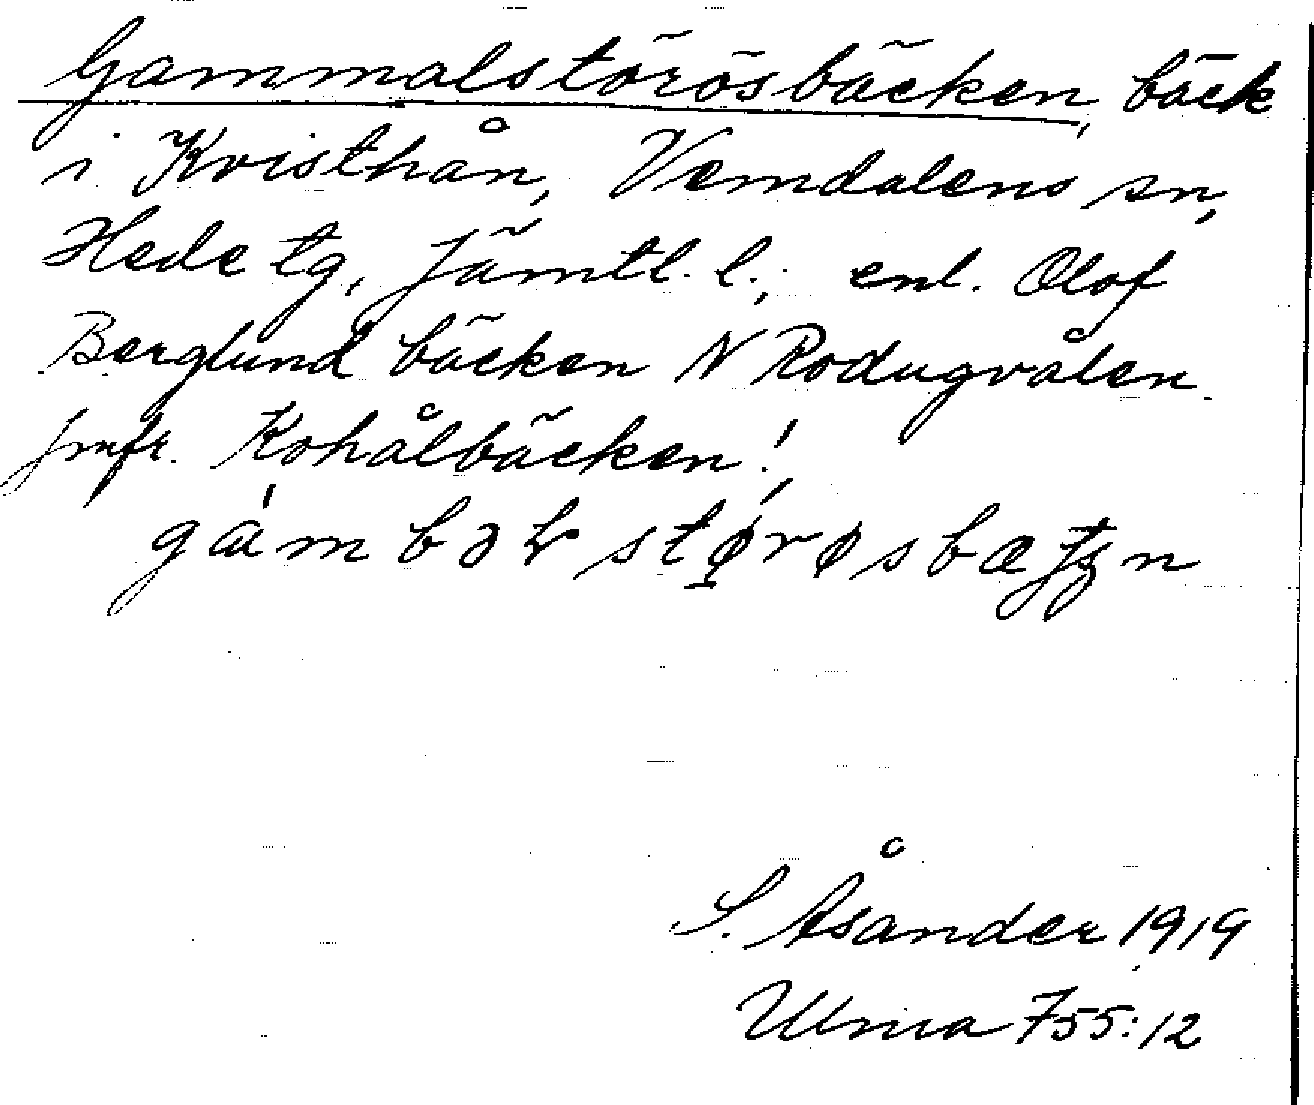 Gammalstörösbäcken, bäck
i Kvisthån, Vemdalens sn,
Hede tg, Jämtl. l.; enl. Olof
Berglund bäcken N Rodugvålen
jmfr. Kohålbäcken!
S. Åsander 1919
Ulma 755:12